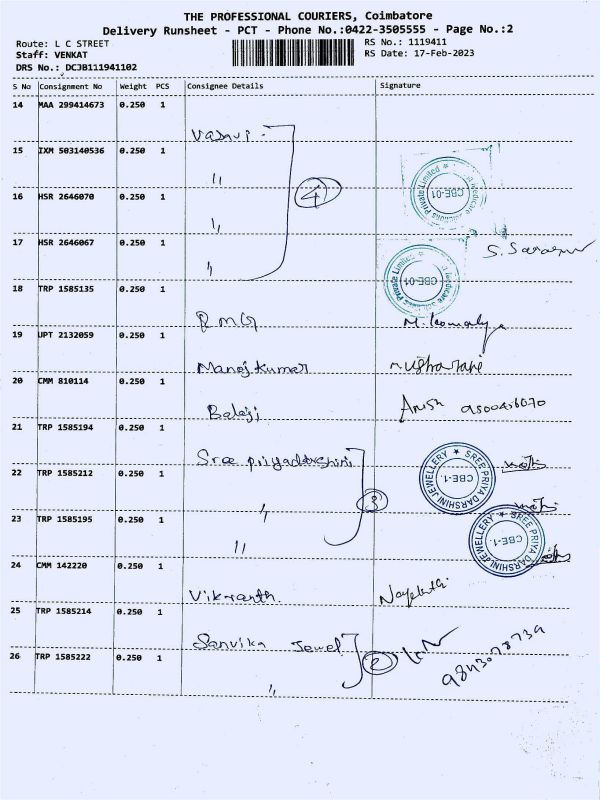 THE PROFESSIONAL COURIERS, Coimbatore
Delivery Runsheet - PCT - Phone No.:0422-3505555 - Page No.:2
Route: L C STREET
RS No.: 1119411
Staff: VENKAT
RS Date: 17-Feb-2023
DRS No.: DCJB111941102
S No Consignment No Weight PCS Consignee Details Signature
14 MAA 299414673 0.250 1
Vasavi -
15 IXM 503140536 0.250 1
"
16 HSR 2646070 0.250 1
4
"
17 HSR 2646067 0.250 1
"
S. Saras
CBE-01
Medicare
Private Limited
18 TRP 1585135 0.250 1
CBE-01
Medicare
Private Limited
RMG M. Komalya
19 UPT 2132059 0.250 1
Manoj Kumar Usharani
20 CMM 810114 0.250 1
Balaji Anish
21 TRP 1585194 0.250 1
Sree priyadarshini
22 TRP 1585212 0.250 1
SREE PRIYA DARSHINI JEWELLERY ★
CBE-1.
"
3
23 TRP 1585195 0.250 1
SREE PRIYA DARSHINI JEWELLERY ★
CBE-1.
"
24 CMM 142220 0.250 1
Vikranth.
25 TRP 1585214 0.250 1
Sanvika Jewel
2
9843078739
26 TRP 1585222 0.250 1
"